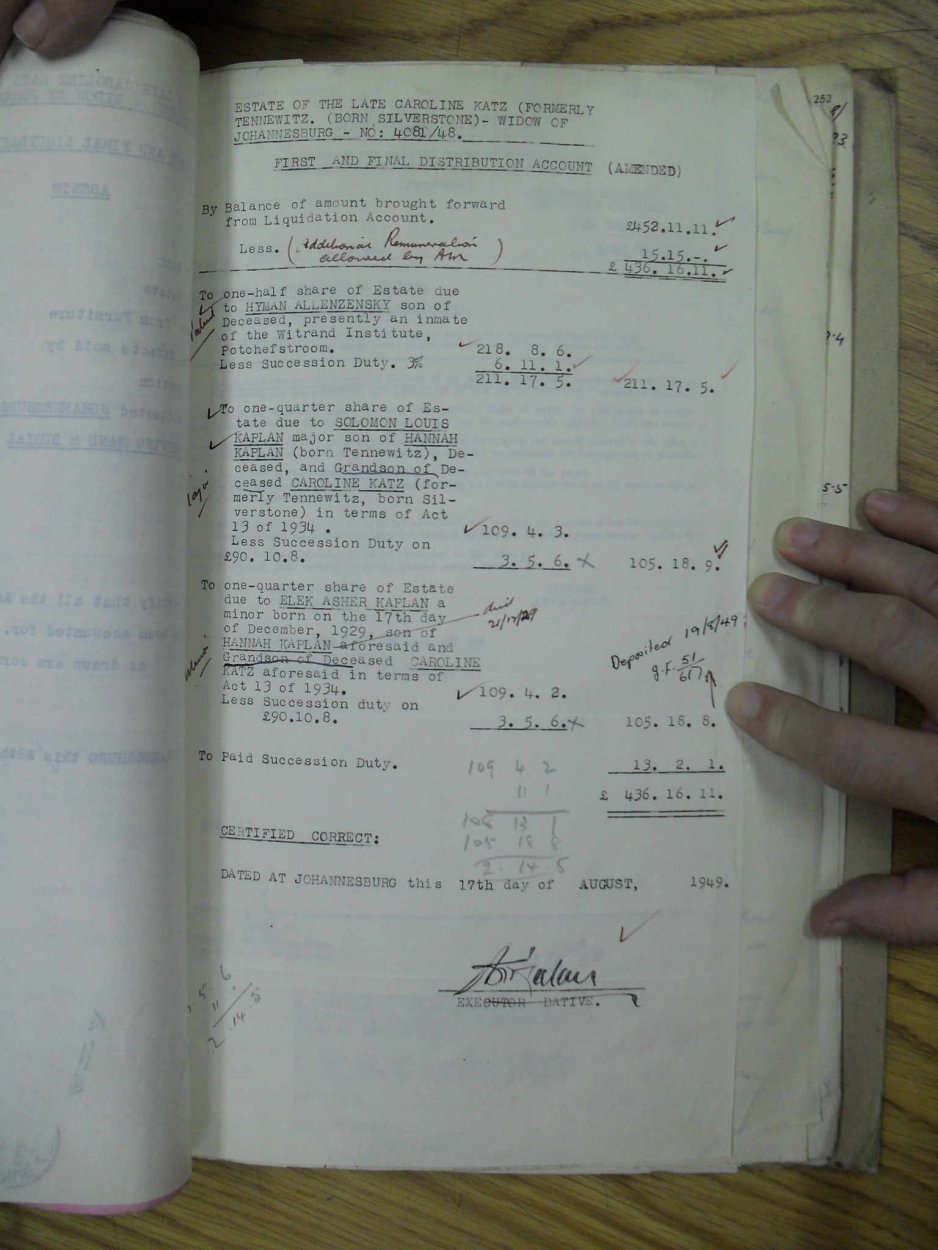 252
ESTATE OF THE LATE CAROLINE KATZ (FORMERLY
TENNEWITZ. (BORN SILVERSTONE)- WIDOW OF
JOHANNESBURG - NO: 4081/48.
FIRST AND FINAL DISTRIBUTION ACCOUNT (AMENDED)
By Balance of amount brought forward
from Liquidation Account. £452.11.11.
Less. (Additional Remuneration
allowed by ) 15.15.-.
£ 436. 16.11.
To one-half share of Estate due
to HYMAN ALLENZENSKY son of
Deceased, presently an inmate
of the Witrand Institute,
Potchefstroom. 218. 8. 6.
Less Succession Duty. 3% 6. 11. 1.
211. 17. 5. 211. 17. 5.
To one-quarter share of Es-
tate due to SOLOMON LOUIS
KAPLAN major son of HANNAH
KAPLAN (born Tennewitz), De-
ceased, and Grandson of De-
ceased CAROLINE KATZ (for-
merly Tennewitz, born Sil-
verstone) in terms of Act
13 of 1934 . 109. 4. 3.
Less Succession Duty on
£90. 10.8. 3. 5. 6. 105. 18. 9.
To one-quarter share of Estate
due to ELEK ASHER KAPLAN a
minor born on the 17th day
of December, 1929, son of
HANNAH KAPLAN aforesaid and
Grandson of Deceased CAROLINE
KATZ aforesaid in terms of
Act 13 of 1934. 109. 4. 2.
Less Succession duty on
£90.10.8. 3. 5. 6. 105. 18. 8.
Deposited 19/8/49
g.f. 51/617
To Paid Succession Duty. 13. 2. 1.
£ 436. 16. 11.
109 4 2
11 1
108 13 1
105 18 8
2. 14. 5
CERTIFIED CORRECT:
DATED AT JOHANNESBURG this 17th day of AUGUST, 1949.
EXECUTOR DATIVE.